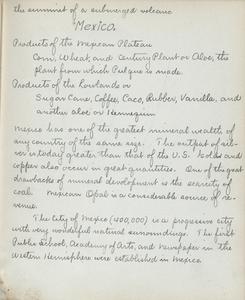 the summit of a submerged volcano
Mexico.
Products of the Mexican Plateau
Corn, Wheat, and Century Plant or Aloe, the
plant from which Pulque is made.
Products of the Lowlands or
Sugar Cane, Coffee, Caco, Rubber, Vanilla, and
another aloe or Hennequin
Mexico has one of the greatest mineral wealth of
any country of the same size. The output of sil-
ver is today greater than that of the U.S. Gold and
copper also occur in great quantities. One of the great
drawbacks of mineral development is the scarcity of
coal. Mexican Opal is a considerable source of re-
venue.
The City of Mexico (400,000) is a progressive city
with very wonderful natural surroundings. The first
Public School, Academy of Arts, and Newspaper in the
Western Hemisphere were established in Mexico